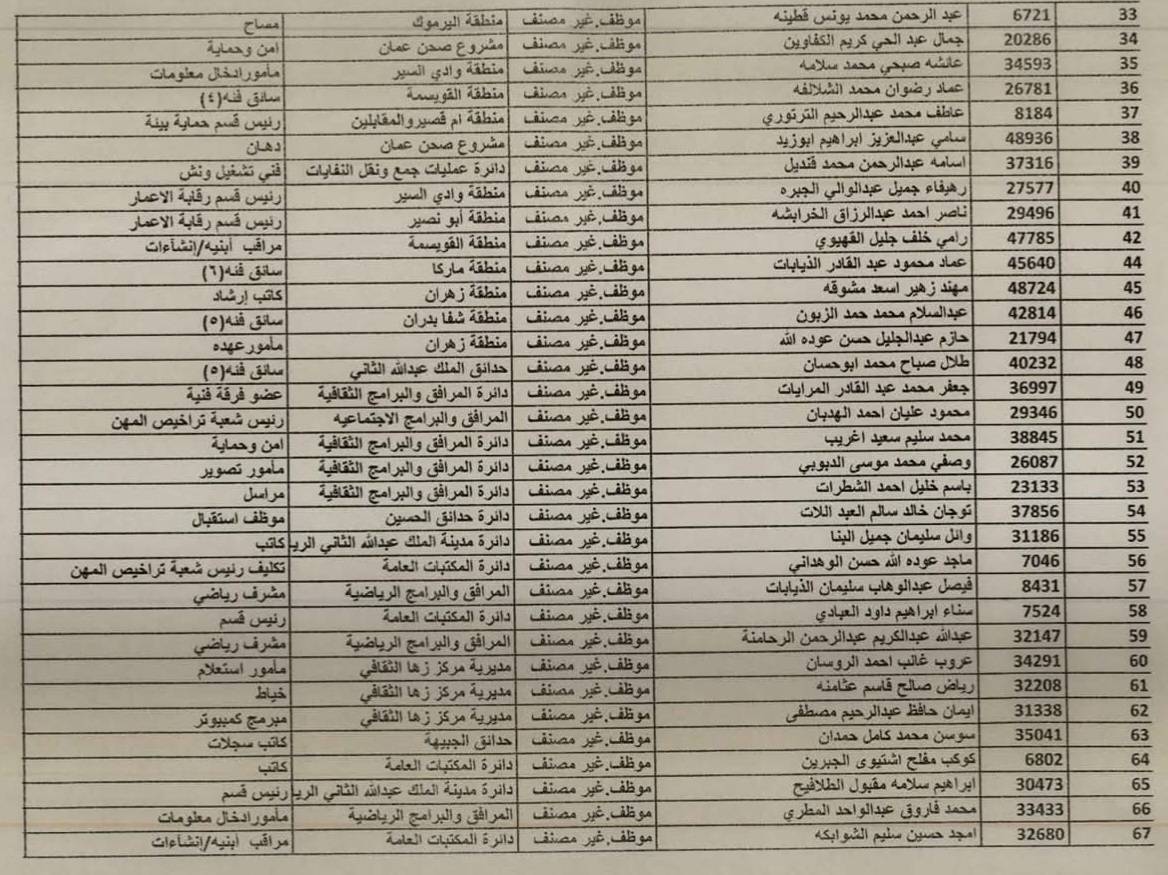 33 6721 عبد الرحمن محمد يونس قطينه موظف.غير مصنف منطقة اليرموك مساح
34 20286 جمال عبد الحي كريم الكفاوين موظف.غير مصنف مشروع صحن عمان امن وحماية
35 34593 عائشه صبحي محمد سلامه موظف.غير مصنف منطقة وادي السير مأمورادخال معلومات
36 26781 عماد رضوان محمد الشلالفه موظف.غير مصنف منطقة القويسمة سائق فنه(٤)
37 8184 عاطف محمد عبدالرحيم الترتوري موظف.غير مصنف منطقة ام قصيروالمقابلين رئيس قسم حماية بيئة
38 48936 سامي عبدالعزيز ابراهيم ابوزيد موظف.غير مصنف مشروع صحن عمان دهان
39 37316 اسامه عبدالرحمن محمد قنديل موظف.غير مصنف دائرة عمليات جمع ونقل النفايات فني تشغيل ونش
40 27577 رهيفاء جميل عبدالوالي الجبره موظف.غير مصنف منطقة وادي السير رئيس قسم رقابة الاعمار
41 29496 ناصر احمد عبدالرزاق الخرابشه موظف.غير مصنف منطقة أبو نصير رئيس قسم رقابة الاعمار
42 47785 رامي خلف جليل القهيوي موظف.غير مصنف منطقة القويسمة مراقب أبنيه/إنشآءات
44 45640 عماد محمود عبد القادر الذيابات موظف.غير مصنف منطقة ماركا سائق فنه(٦)
45 48724 مهند زهير اسعد مشوقه موظف.غير مصنف منطقة زهران كاتب إرشاد
46 42814 عبدالسلام محمد حمد الزبون موظف.غير مصنف منطقة شفا بدران سائق فنه(٥)
47 21794 حازم عبدالجليل حسن عوده الله موظف.غير مصنف منطقة زهران مأمورعهده
48 40232 طلال صباح محمد ابوحسان موظف.غير مصنف حدائق الملك عبدالله الثاني سائق فنه(٥)
49 36997 جعفر محمد عبد القادر المرايات موظف.غير مصنف دائرة المرافق والبرامج الثقافية عضو فرقة فنية
50 29346 محمود عليان احمد الهدبان موظف.غير مصنف المرافق والبرامج الاجتماعيه رئيس شعبة تراخيص المهن
51 38845 محمد سليم سعيد اغريب موظف.غير مصنف دائرة المرافق والبرامج الثقافية امن وحماية
52 26087 وصفي محمد موسى الدبوبي موظف.غير مصنف دائرة المرافق والبرامج الثقافية مأمور تصوير
53 23133 باسم خليل احمد الشطرات موظف.غير مصنف دائرة المرافق والبرامج الثقافية مراسل
54 37856 توجان خالد سالم العبد اللات موظف.غير مصنف دائرة حدائق الحسين موظف استقبال
55 31186 وائل سليمان جميل البنا موظف.غير مصنف دائرة مدينة الملك عبدالله الثاني الريا كاتب
56 7046 ماجد عوده الله حسن الوهداني موظف.غير مصنف دائرة المكتبات العامة تكليف رئيس شعبة تراخيص المهن
57 8431 فيصل عبدالوهاب سليمان الذيابات موظف.غير مصنف المرافق والبرامج الرياضية مشرف رياضي
58 7524 سناء ابراهيم داود العبادي موظف.غير مصنف دائرة المكتبات العامة رئيس قسم
59 32147 عبدالله عبدالكريم عبدالرحمن الرحامنة موظف.غير مصنف المرافق والبرامج الرياضية مشرف رياضي
60 34291 عروب غالب احمد الروسان موظف.غير مصنف مديرية مركز زها الثقافي مأمور استعلام
61 32208 رياض صالح قاسم عثامنه موظف.غير مصنف مديرية مركز زها الثقافي خياط
62 31338 ايمان حافظ عبدالرحيم مصطفى موظف.غير مصنف مديرية مركز زها الثقافي مبرمج كمبيوتر
63 35041 سوسن محمد كامل حمدان موظف.غير مصنف حدائق الجبيهة كاتب سجلات
64 6802 كوكب مفلح اشتيوى الجبرين موظف.غير مصنف دائرة المكتبات العامة كاتب
65 30473 ابراهيم سلامه مقبول الطلافيح موظف.غير مصنف دائرة مدينة الملك عبدالله الثاني الريا رئيس قسم
66 33433 محمد فاروق عبدالواحد المطري موظف.غير مصنف المرافق والبرامج الرياضية مأمورادخال معلومات
67 32680 امجد حسين سليم الشوابكه موظف.غير مصنف دائرة المكتبات العامة مراقب أبنيه/إنشآءات